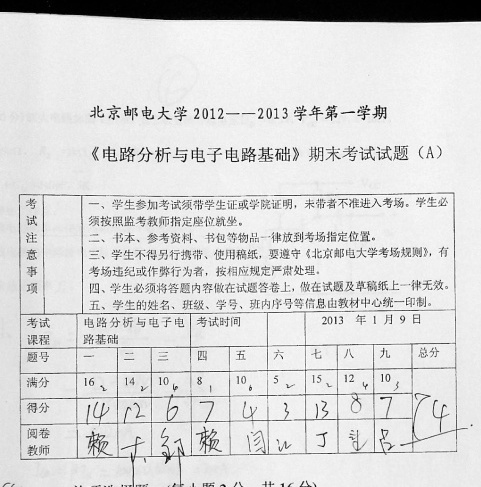 北京邮电大学 2012——2013 学年第一学期
《电路分析与电子电路基础》期末考试试题（A）
考试注意事项
一、学生参加考试须带学生证或学院证明，未带者不准进入考场。学生必
须按照监考教师指定座位就坐。
二、书本、参考资料、书包等物品一律放到考场指定位置。
三、学生不得另行携带、使用稿纸，要遵守《北京邮电大学考场规则》，有
考场违纪或作弊行为者，按相应规定严肃处理。
四、学生必须将答题内容做在试题答卷上，做在试题及草稿纸上一律无效。
五、学生的姓名、班级、学号、班内序号等信息由教材中心统一印制。
考试课程 电路分析与电子电路基础 考试时间 2013 年 1 月 9 日
题号 一 二 三 四 五 六 七 八 九 总分
满分 16 2 14 2 10 6 8 1 10 6 5 2 15 2 12 4 10 3
得分 14 12 6 7 4 3 13 8 7 74
阅卷教师 赖 于 邹 赖 闫 丁 吕